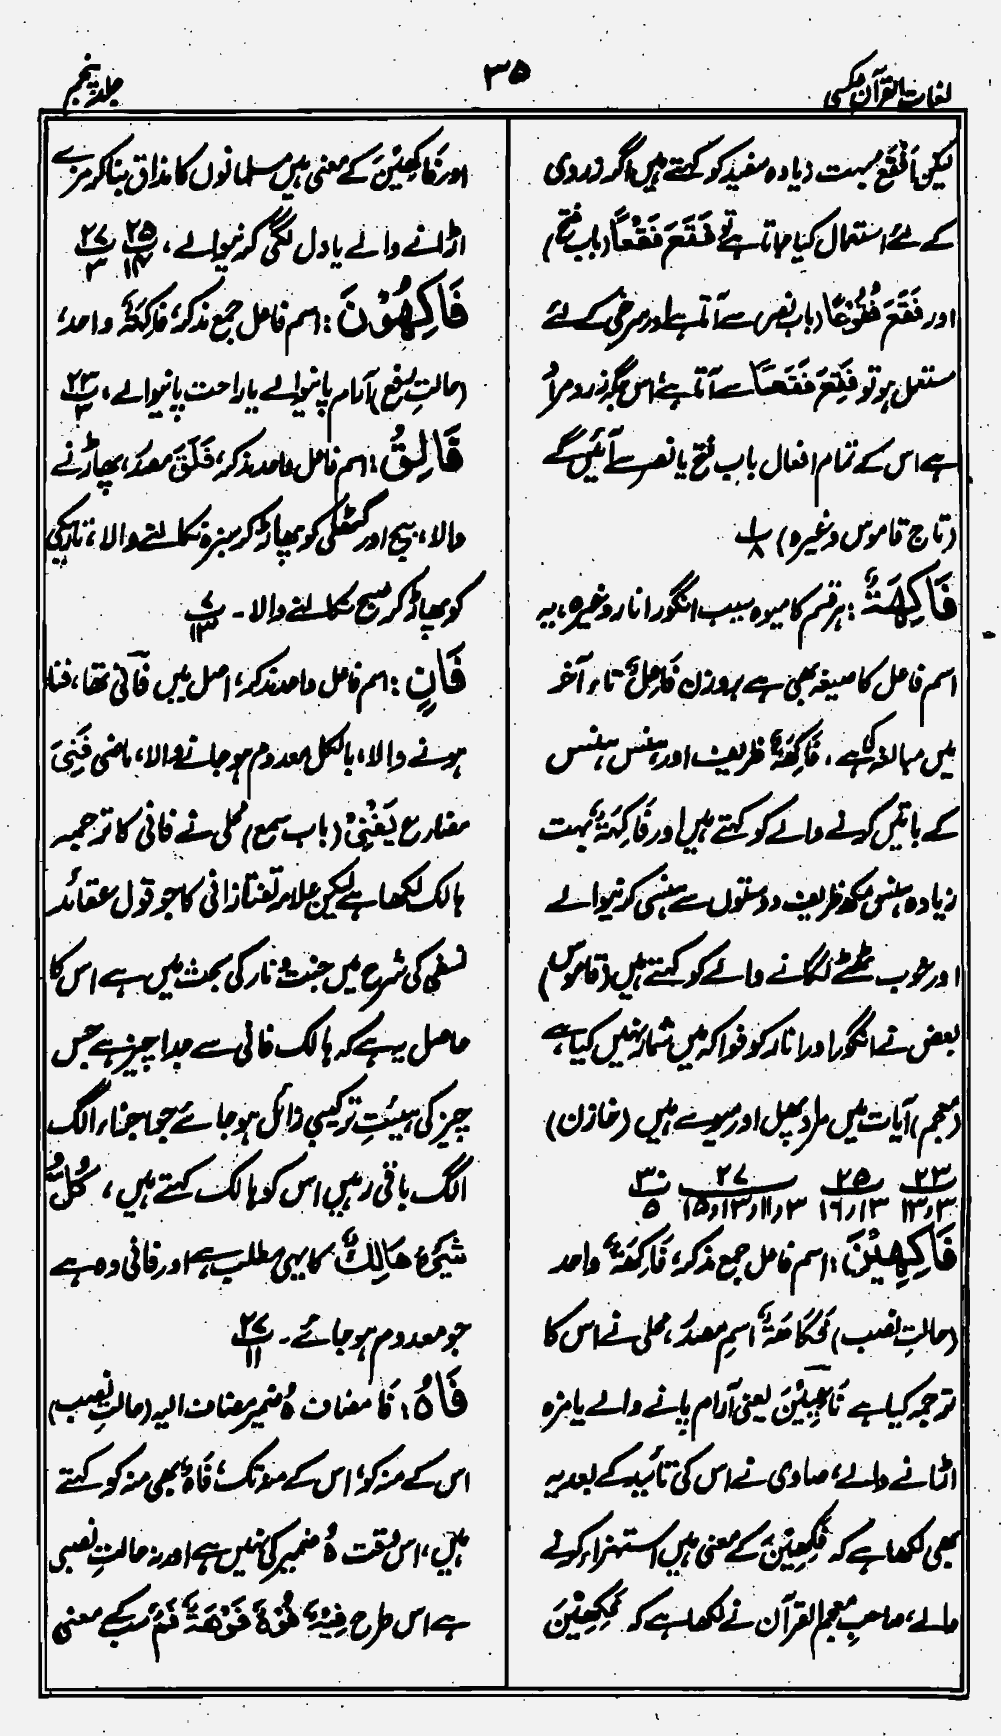 لغات القرآن عکسی
۳۵
جلد پنجم
لیکن اَفْقَع بہت زیادہ سفید کو کہتے ہیں اگر زردی
کے لئے استعمال کیا جاتا ہے تو فَقَعَ فَقْعًا (باب فتح)
اور فَقَعَ فُقُوْعًا (باب نصر) سے آتا ہے اور سرخی کے لئے
مستعمل ہو تو فَقِعَ فَقَعًا سے آتا ہے، اس جگہ زرد مراد
ہے اس کے تمام افعال باب فتح یا نصر سے آئیں گے
(تاج قاموس وغیرہ) پ ۱/۸
فَاكِهَةٌ: ہر قسم کا میوہ سیب انگور انار وغیرہ، یہ
اسم فاعل کا صیغہ بھی ہے بروزن فَاعِلَةٌ تاء آخر
میں مبالغہ کی ہے، فَاكِهَةٌ ظریف اور ہنس ہنس
کے باتیں کرنے والے کو کہتے ہیں اور فَاكِهَةٌ بہت
زیادہ ہنس مکھ ظریف دوستوں سے ہنسی کرنیوالے
اور خوب ٹھٹے لگانے والے کو کہتے ہیں (قاموس)
بعض نے انگور اور انار کو فواکہ میں شمار نہیں کیا ہے
(معجم) آیات میں مراد پھل اور میوے ہیں (خازن)
پ ۲۳ پ ۲۵ پ ۲۷ پ ۳۰
۳ر۱۳ ۱۳ر۱۶ ۳ر۱۱ر۱۳ر۱۵ ۵
فَاكِهِيْنَ: اسم فاعل جمع مذکر، فَاكِهَةٌ واحد
(حالتِ نصب) فُكَاهَةٌ اسمِ مصدر، محلی نے اس کا
ترجمہ کیا ہے نَاعِمِيْنَ یعنی آرام پانے والے یا مزہ
اڑانے والے، صاوی نے اس کی تائید کے بعد یہ
بھی لکھا ہے کہ فَكِهِيْنَ کے معنی ہیں استہزاء کرنے
والے، صاحبِ معجم القرآن نے لکھا ہے کہ فَكِهِيْنَ
اور فَاكِهِيْنَ کے معنی ہیں مسلمانوں کا مذاق بنا کر مزے
اڑانے والے یا دل لگی کرنیوالے، پ ۲۵/۱۴ پ ۲۷/۳
فَاكِهُوْنَ: اسم فاعل جمع مذکر، فَاكِهَةٌ واحد،
(حالتِ رفع) آرام پانیوالے یا راحت پانیوالے، پ ۲۳/۳
فَالِقُ: اسم فاعل واحد مذکر، فَلَقَ مصدر، پھاڑنے
والا، بیج اور گٹھلی کو پھاڑ کر سبزہ نکالنے والا، تاریکی
کو پھاڑ کر صبح نکالنے والا۔ پ ۷/۱۳
فَانٍ: اسم فاعل واحد مذکر، اصل میں فانی تھا، فنا
ہونے والا، بالکل معدوم ہو جانے والا، ماضی فَنِیَ
مضارع يَفْنٰى (باب سمع) محلی نے فانی کا ترجمہ
ہالک لکھا ہے لیکن علامہ تفتازانی کا جو قول عقائد
نسفی کی شرح میں جنت و نار کی بحث میں ہے اس کا
حاصل یہ ہے کہ ہالک فانی سے جدا چیز ہے جس
چیز کی ہیئتِ ترکیبی زائل ہو جائے جو اجزاء الگ
الگ باقی رہیں اس کو ہالک کہتے ہیں، كُلُّ
شَيْءٍ هَالِكٌ کا یہی مطلب ہے اور فانی وہ ہے
جو معدوم ہو جائے۔ پ ۲۷/۱۱
فَاهُ: فَا مضاف هُ ضمیر مضاف الیہ (حالتِ نصب)
اس کے منہ کو، اس کے منہ تک، فَاهٌ بھی منہ کو کہتے
ہیں، اس وقت هُ ضمیر کی نہیں ہے اور نہ حالتِ نصبی
ہے اس طرح فِيْهٌ فُوْهٌ فَوْهَةٌ فَمٌ سب کے معنی